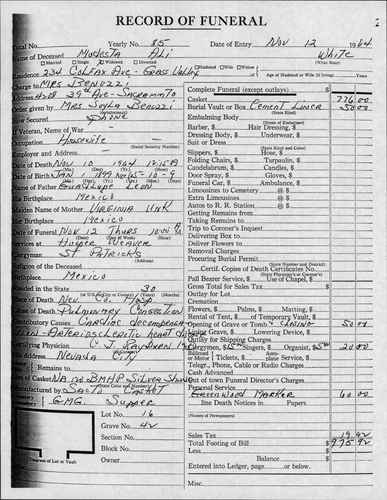 RECORD OF FUNERAL
Total No. Yearly No. 85 Date of Entry Nov 12 1964
Name of Deceased Modesta Ali White
(What Race)
Married Single Widowed Divorced Husband Wife Widow of
Residence 234 Colfax Ave - Grass Valley
Age of Husband or Wife (if living) Years
Charge to Mrs Benuzzi
Address 4208 39th Ave - Sacramento
Order given by Mrs Benuzzi
How Secured Same
If Veteran, Name of War
Occupation Housewife
(Social Security Number)
Employer and Address
Date of Death Nov 10 1964 12:15 A
Date of Birth Jan 1 1899 Age 65-10-9
Name of Father Guadalupe Leon
His Birthplace Mexico
Maiden Name of Mother Virginia Unk
Her Birthplace Mexico
Date of Funeral Nov 12 Thurs 10:00 A
Services at Hooper Weaver
Clergyman St Patricks
Religion of the Deceased
Birthplace Mexico
Resided in the State 30
Place of Death Nev. Co. Hosp
Cause of Death Pulmonary Congestion
Contributory Causes Cardiac decompensa
tion - Arteriosclerotic heart dis
Certifying Physician C. J.
His Address Nevada City
Remains to
Casket No. BMHP Silver
Manufactured by Sacto Casket
GMG Supper
Lot No. 16
Grave No. 42
Section No.
Block No.
Owner
Diagram of Lot or Vault
Complete Funeral (except outlays) $
Casket 776.00
Burial Vault or Box Cement Liner 50.00
(State Kind)
Embalming Body
(State Name of Embalmer)
Barber, $ Hair Dressing, $
Dressing Body, $ Underwear, $
Suit or Dress
(State Kind and Color)
Slippers, $ Hose, $
Folding Chairs, $ Tarpaulin, $
Candelabrum, $ Candles, $
Door Spray, $ Gloves, $
Funeral Car, $ Ambulance, $
Limousines to Cemetery @ $
Extra Limousines @ $
Autos to R. R. Station @ $
Getting Remains from
Taking Remains to
Trip to Coroner's Inquest
Delivering Box to
Deliver Flowers to
Removal Charges
Procuring Burial Permit
(State Number and District)
Certif. Copies of Death Certificates No.
Pall Bearer Service, $ Use of Chapel, $
Gross Total for Sales Tax $
Outlay for Lot
Cremation
Flowers, $ Palms, $ Matting, $
Rental of Tent, $ of Temporary Vault, $
Opening of Grave or Tomb + closing 50.00
Lining Grave, $ Lowering Device, $
Outlay for Shipping Charges
Clergymen, $ Singers, $ Organist, $ 20.00
Tickets, $ Aeroplane Service, $
Telegr., Phone, Cable or Radio Charges
Cash Advanced
Out of town Funeral Director's Charges
Personal Service
Greenwood Marker 60.00
line Death Notices in Papers
(Names of Newspapers)
Sales Tax 19.92
Total Footing of Bill $975.92
Less
Balance
Entered into Ledger, page or below.
Misc.